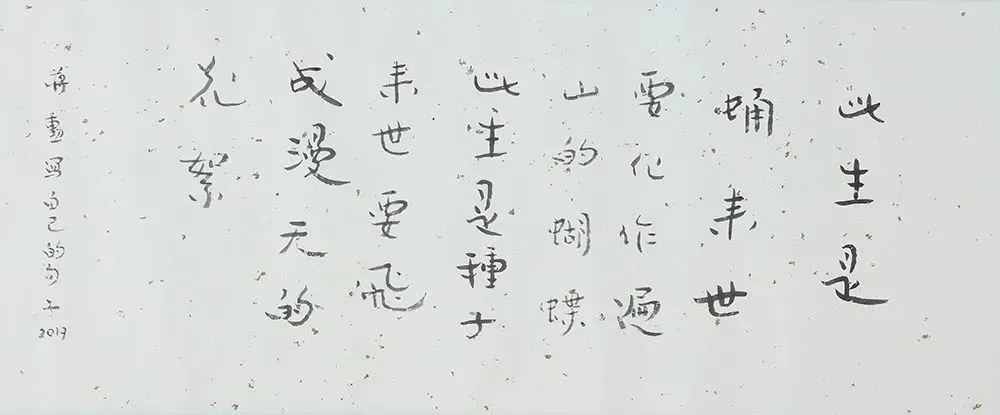 此生是
蛹来世
要化作遍
山的蝴蝶
此生是種子
来世要飛
成漫天的
花絮
蒋勳寫自己的句子
2017